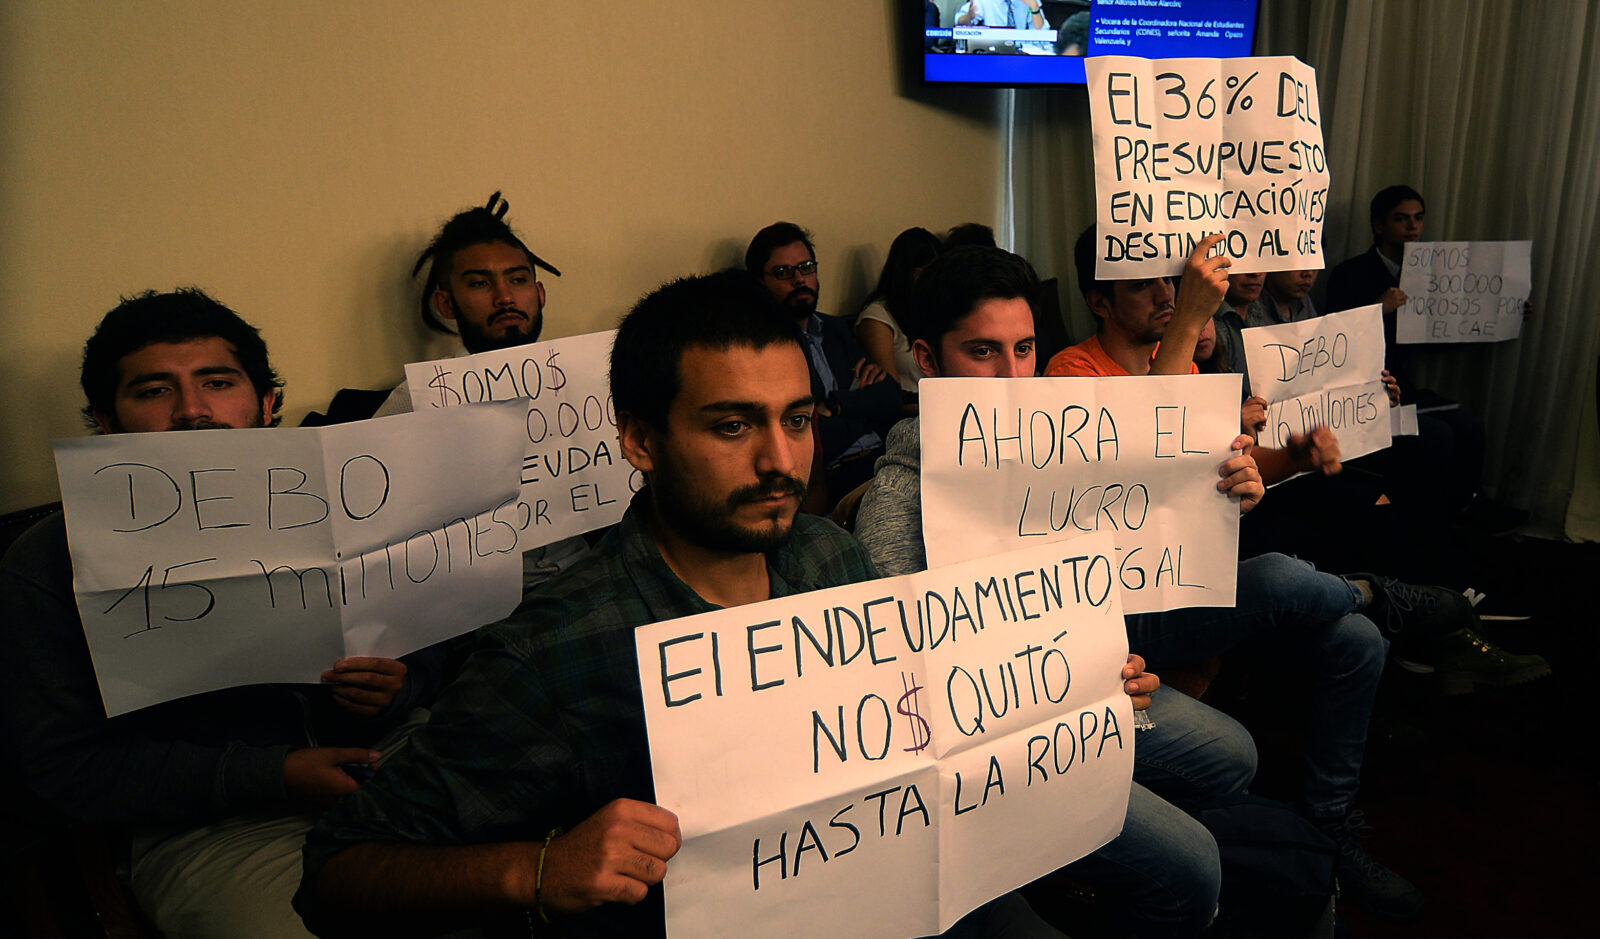 señor Alfonso Mohor Alarcón;
• Vocera de la Coordinadora Nacional de Estudiantes
Secundarios (CONES), señorita Amanda Opazo
Valenzuela, y
COMISIÓN
EDUCACIÓN
EL 36% DEL
PRESUPUESTO
EN EDUCACIÓN, ES
DESTINADO AL CAE
SOMOS
300.000
MOROSOS POR
EL CAE
DEBO
16 millONES
$OMO$
0.000
EUDA
OR EL C
DEBO
15 millONES
AHORA EL
LUCRO
GAL
El ENDEUDAMIENTO,
NO$ QUITÓ
HASTA LA ROPA